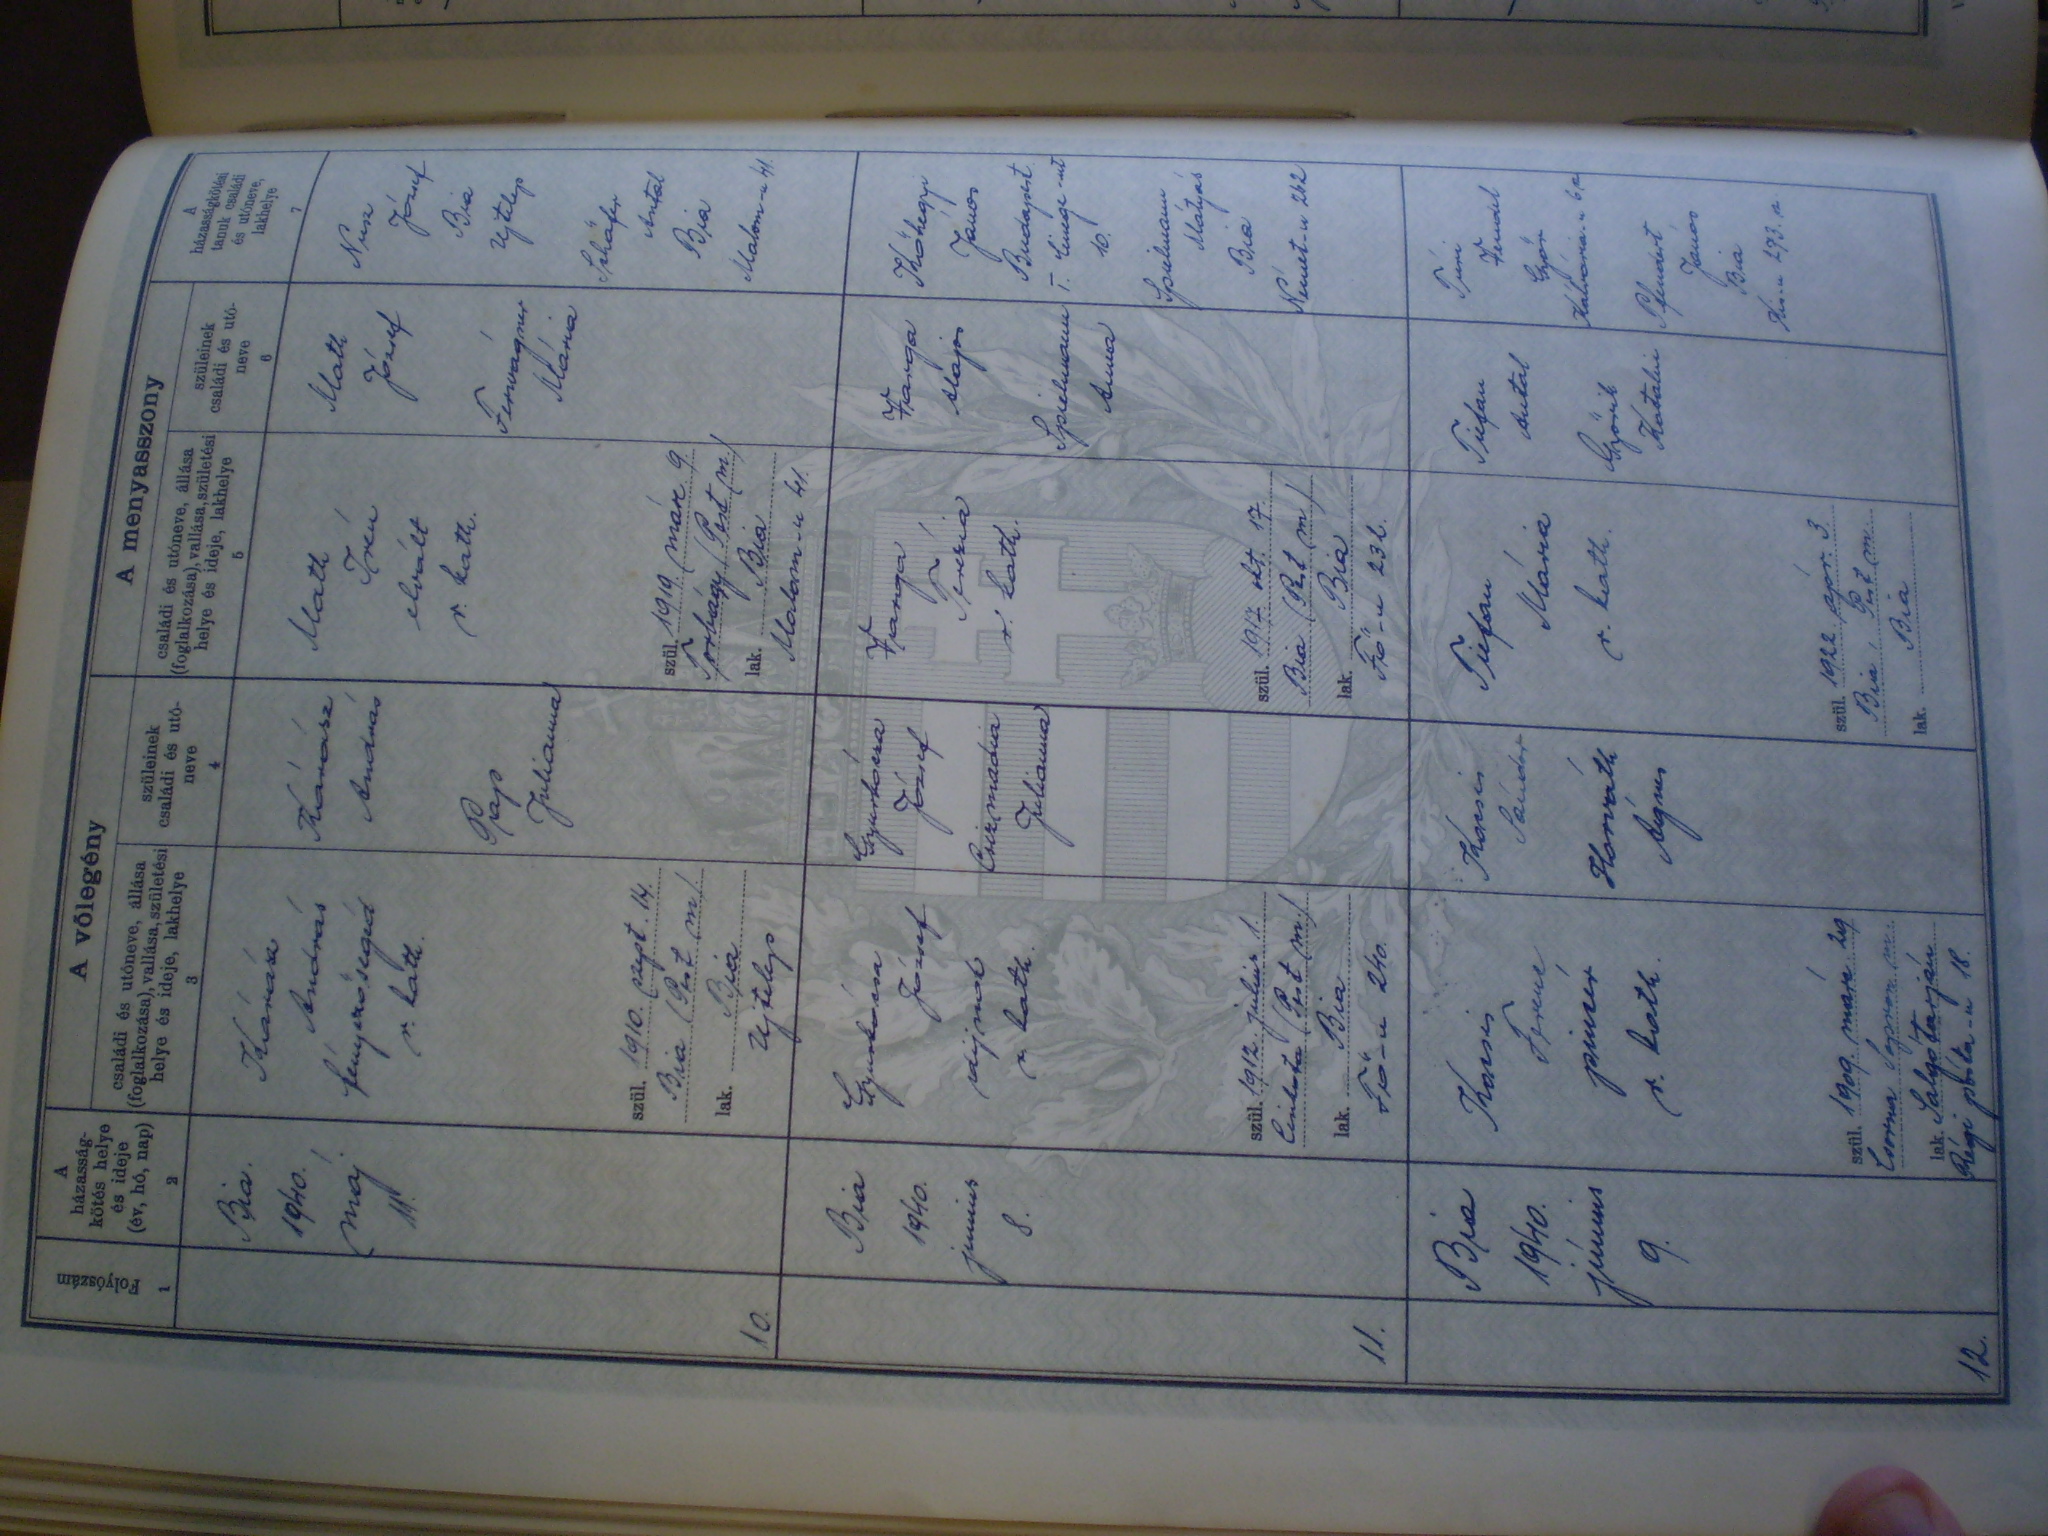 Folyószám
1
A
házasság-
kötés helye
és ideje
(év, hó, nap)
2
A vőlegény
családi és utóneve, állása
(foglalkozása), vallása, születési
helye és ideje, lakhelye
3
szüleinek
családi és utó-
neve
4
A menyasszony
családi és utóneve, állása
(foglalkozása), vallása, születési
helye és ideje, lakhelye
5
szüleinek
családi és utó-
neve
6
A
házasságkötési
tanuk családi
és utóneve,
lakhelye
7
10.
Bia.
1940.
máj.
András
r. kath.
szül. 1910. szept. 14.
Bia (Pest m)
lak. Bia
Ujtelep
András
Pap
Julianna
Math
Irén
elvált
r. kath.
szül. 1919. márc 9.
Torbágy (Pest m)
lak. Bia
Malom-u 41.
Math
József
Fernvágner
Mária
József
Bia
Ujtelep
Schäfer
Antal
Bia
Malom-u 41.
11.
Bia
1940.
junius
8.
Gyurkócza
József
r. kath.
szül. 1912. julius 1.
Cinkota (Pest m)
lak. Bia
Fő-u 240.
Gyurkócza
József
Csizmadia
Julianna
Franga
Terézia
r. kath.
szül. 1917 okt. 17.
Bia (Pest m)
lak. Bia
Fő-u 232.
Franga
Alajos
Spielmann
Anna
Kőhegyi
János
Budapest
10.
Spielmann
Mátyás
Bia
Német-u 262
12.
Bia
1940.
junius
9.
Kocsis
Ferenc
pincér
r. kath.
szül. 1909. márc. 29
Csorna Sopron m.
lak. Salgótarján
Régi posta-u 18.
Kocsis
Sándor
Horváth
Ágnes
Tiefau
Mária
r. kath.
szül. 1922. ápr. 3.
Bia, Pest m.
lak. Bia
Tiefau
Antal
Katalin
Vendel
Győr
Kálvária-u
János
Bia